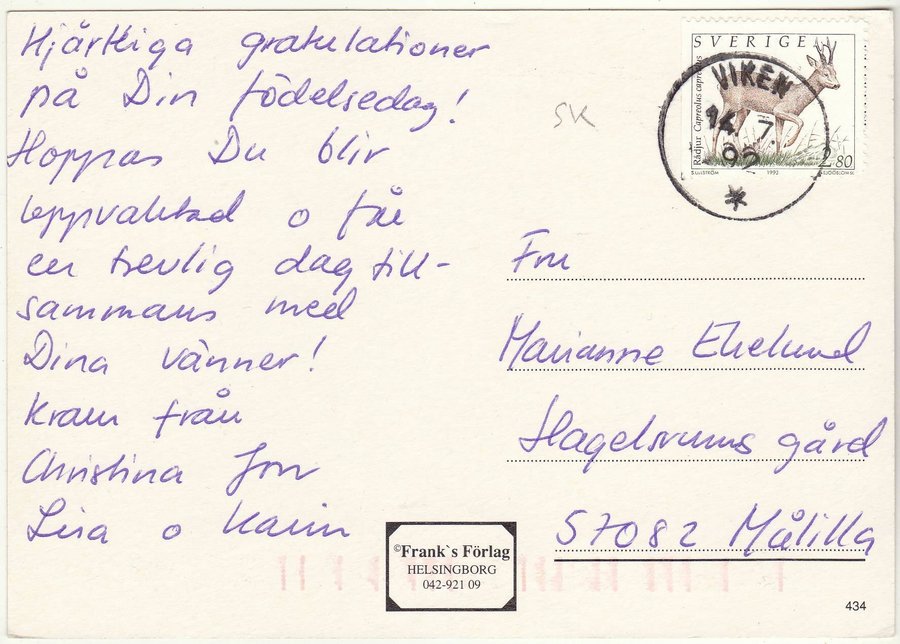 Hjärtliga gratulationer
på Din födelsedag!
Hoppas Du blir
uppvaktad o får
en trevlig dag till-
sammans med
Dina vänner!
Kram från
Christina Jon
Lisa o Karin
SK
SVERIGE
Rådjur Capreolus capreolus
2.80
1992
VIKEN
14 7
92
*
Fru
Marianne Ekelund
Hagelsrums gård
57082 Målilla
©Frank`s Förlag
HELSINGBORG
042-921 09
434